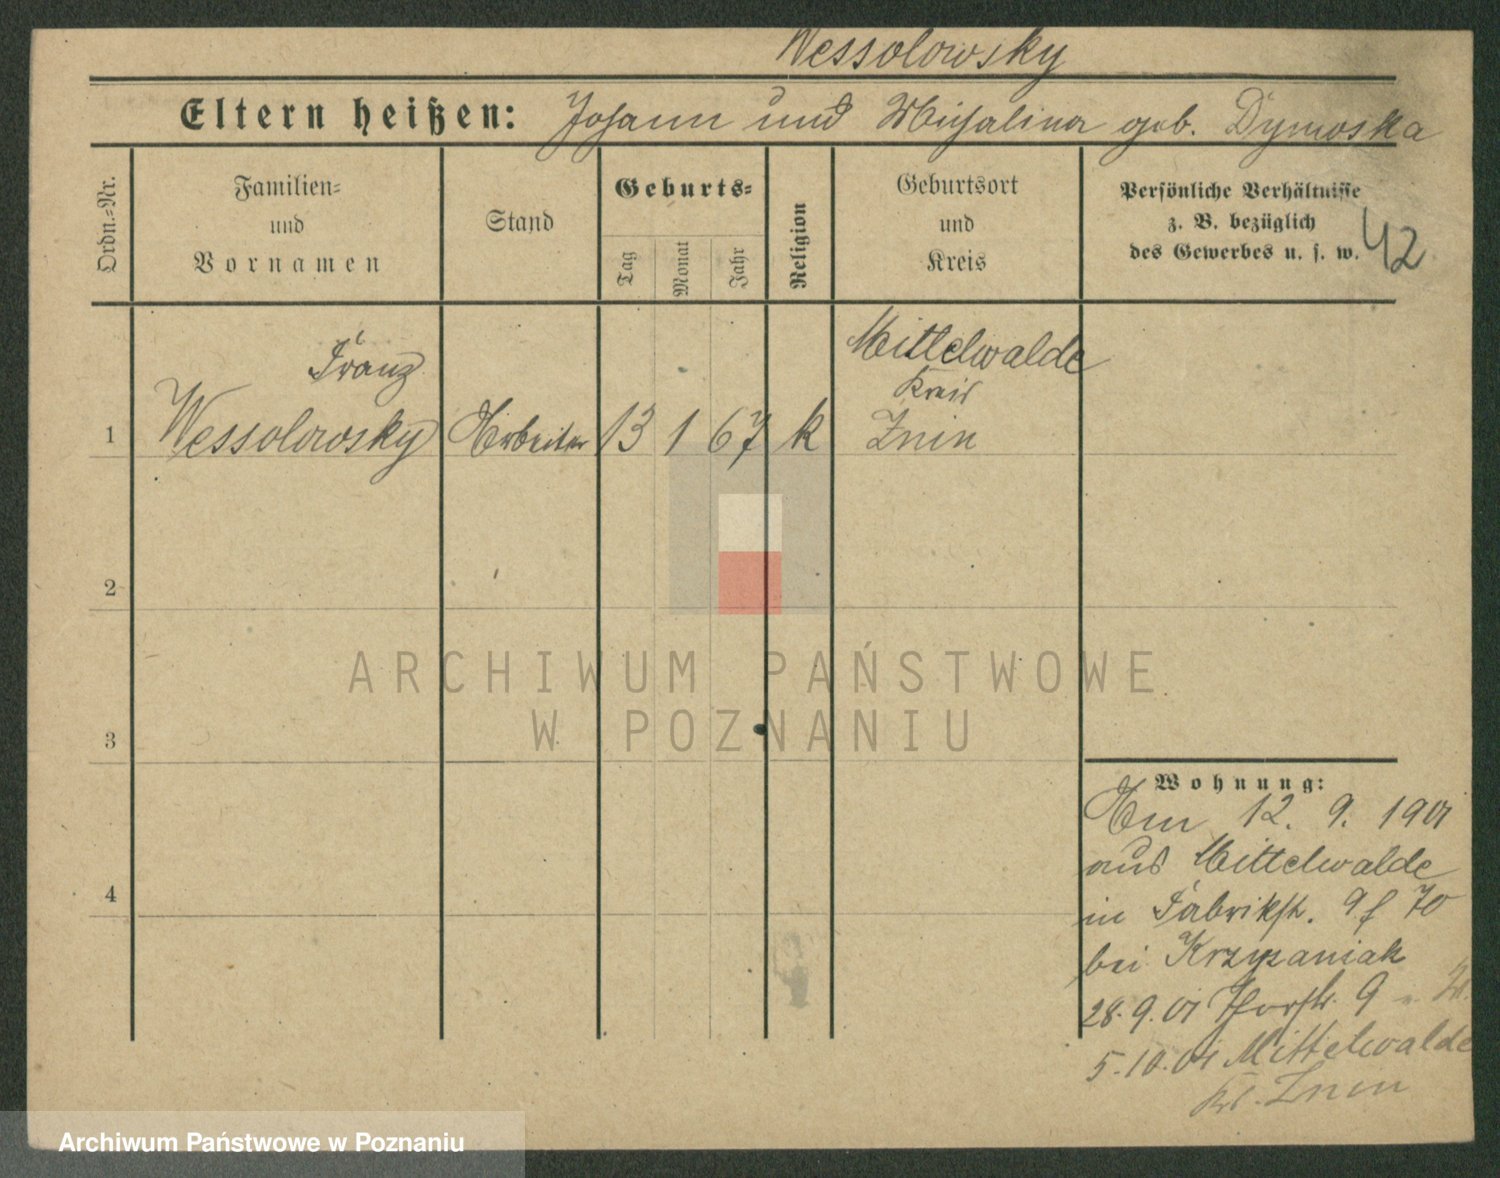 Wessolowsky
Eltern heißen: Johann und Michalina geb. Dymoska
Ordn.-Nr.
Familien-
und
Vornamen
Stand
Geburts-
Tag
Monat
Jahr
Religion
Geburtsort
und
Kreis
Persönliche Verhältnisse
z. B. bezüglich
des Gewerbes u. s. w.
42
1
Franz
Wessolowsky
Arbeiter
13
1
67
k
Mittelwalde
Kreis
Znin
2
3
4
ARCHIWUM PAŃSTWOWE
W POZNANIU
Wohnung:
Am 12. 9. 1901
aus Mittelwalde
in Fabrikstr. 9
bei Krzyzaniak
28.9.01 9
5.10.01 Mittelwalde
Kr. Znin
Archiwum Państwowe w Poznaniu